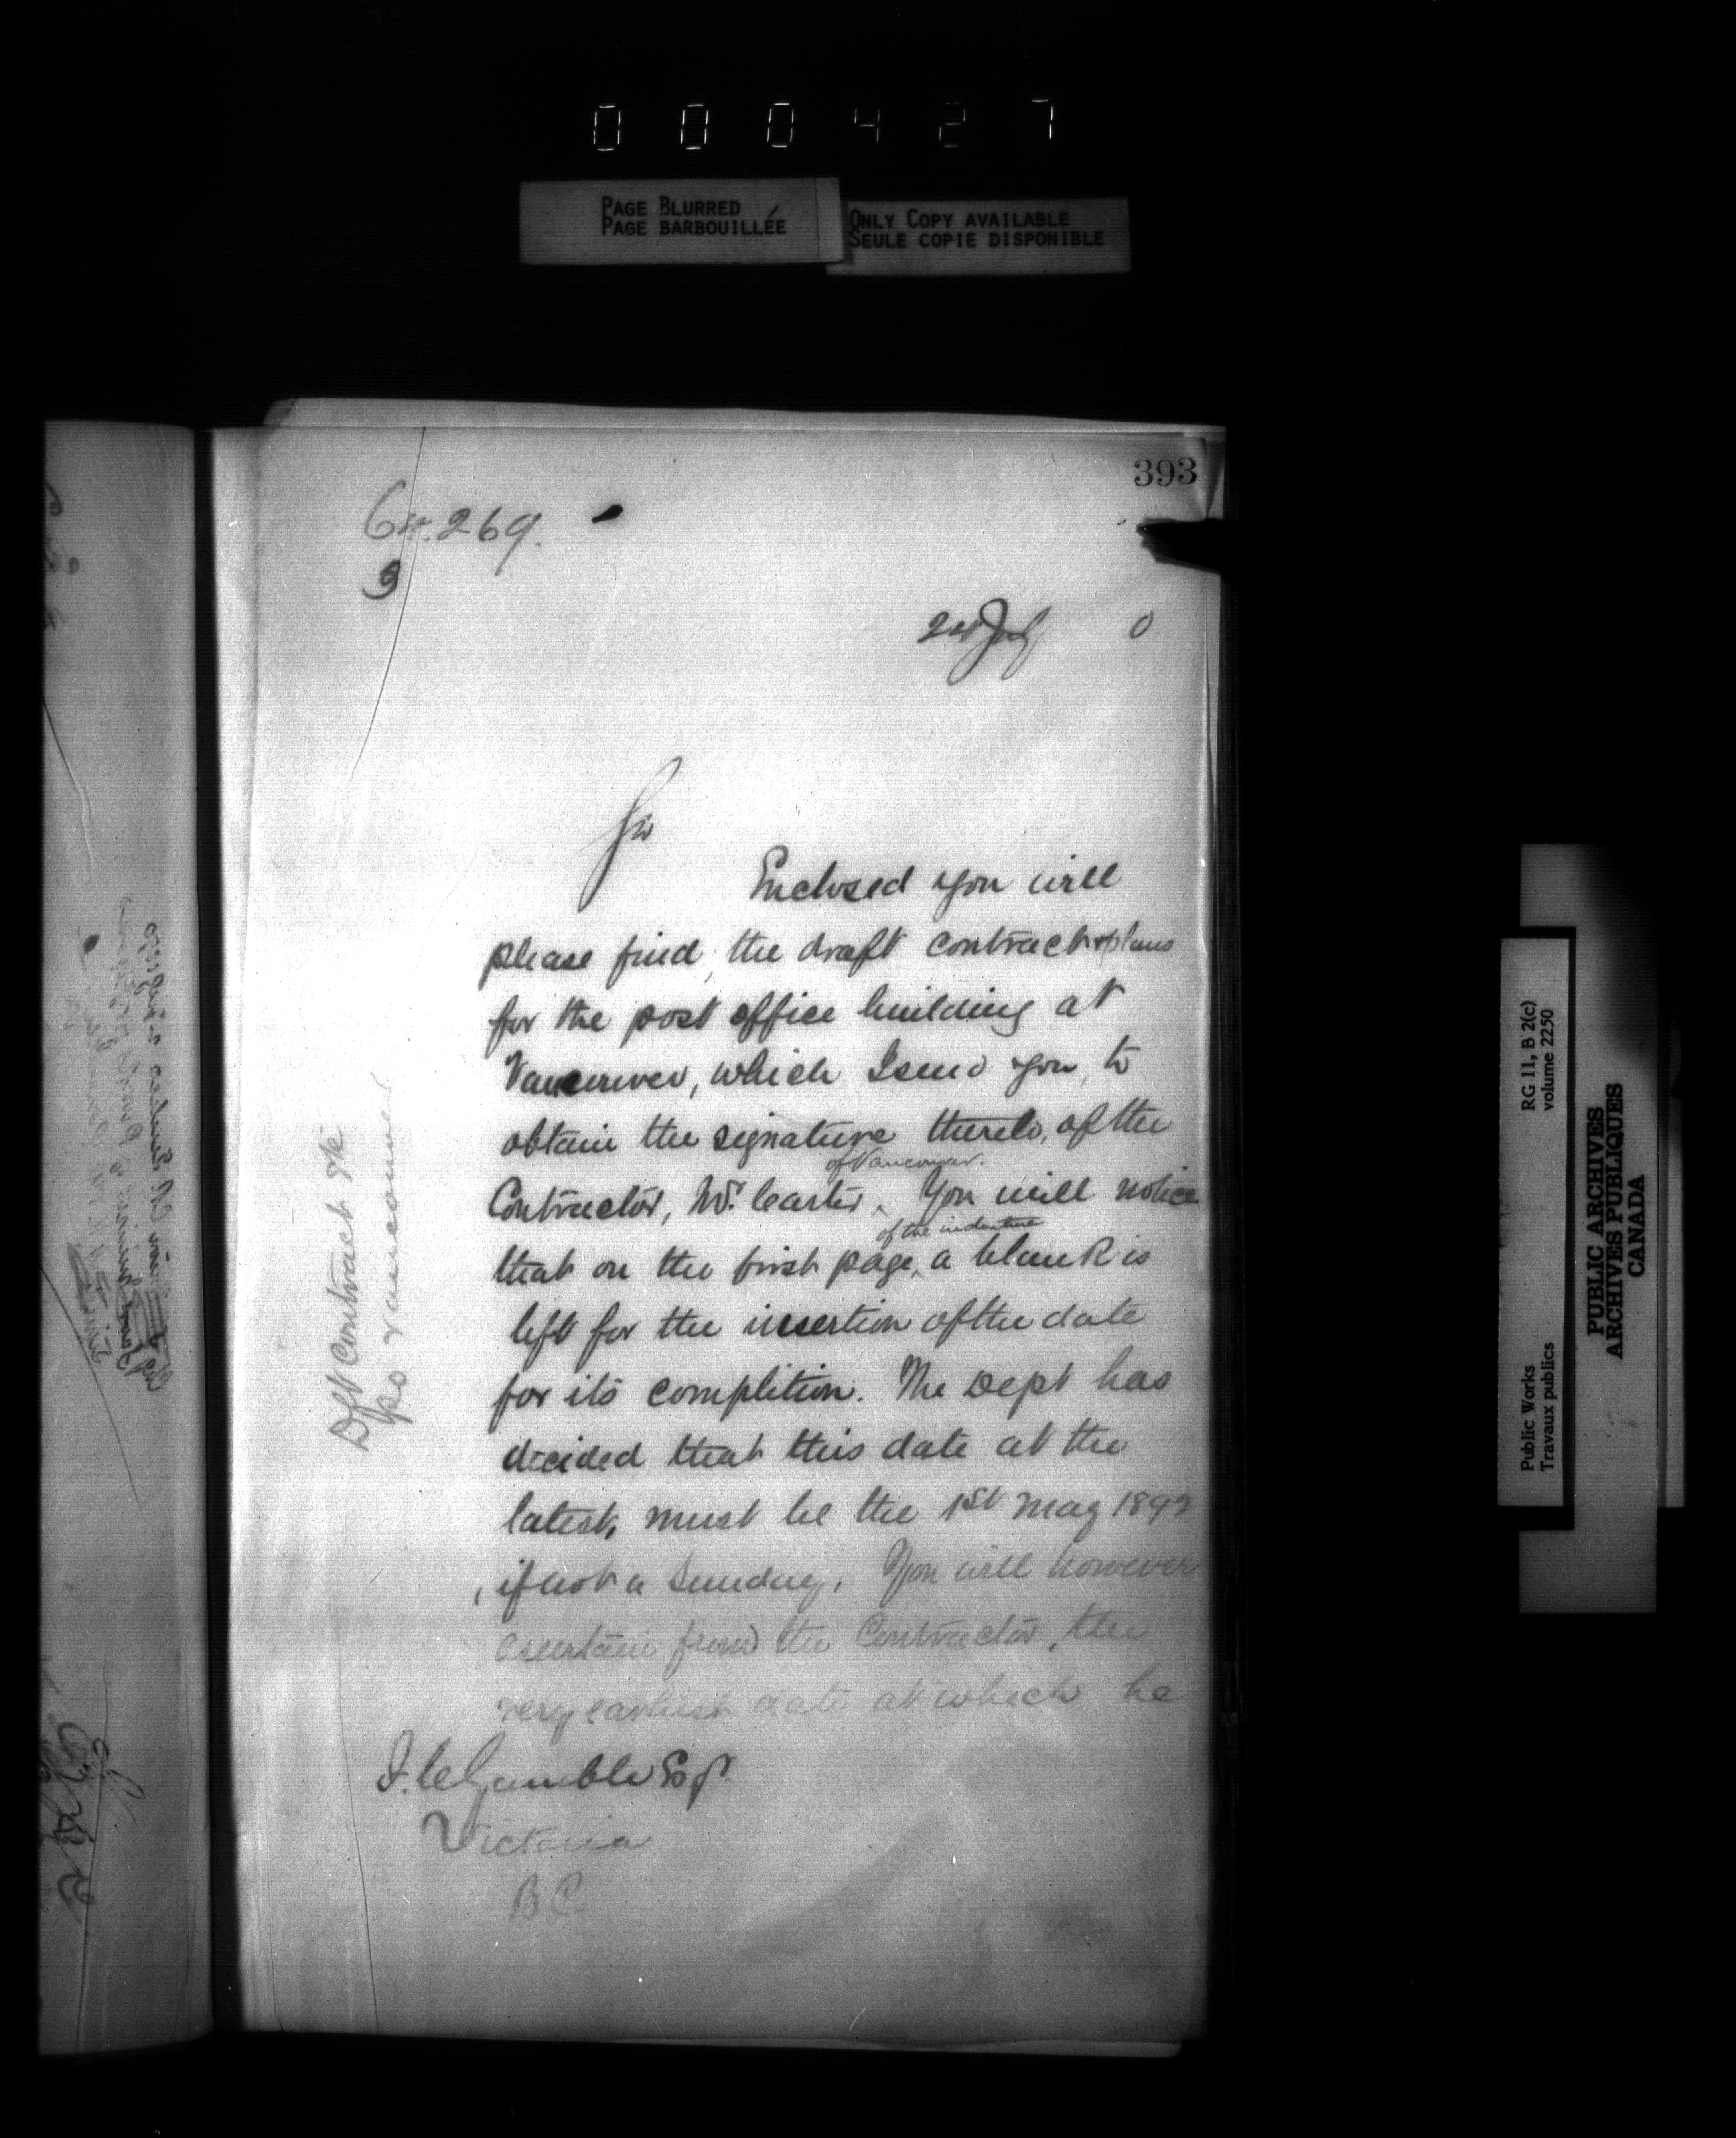 000427
PAGE BLURRED
PAGE BARBOUILLÉE
ONLY COPY AVAILABLE
SEULE COPIE DISPONIBLE
393
64.269.
5
24 July 0
Sir
Enclosed you will
please find, the draft contract & plans
for the post office building at
Vancouver, which I send you, to
obtain the signature thereto, of the
of Vancouver.
Contractor, Mr. Carter. You will notice
of the indenture
that on the first page, a blank is
left for the insertion of the date
for its completion. The Dept has
decided that this date at the
latest, must be the 1st May 1892
, if not a Sunday, You will however
ascertain from the Contractor, the
very earliest date at which he
F. C. Gamble Esqr.
Victoria
B C
Dft Contract &c
po Vancouver
Public Works
Travaux publics
RG 11, B 2(c)
volume 2250
PUBLIC ARCHIVES
ARCHIVES PUBLIQUES
CANADA